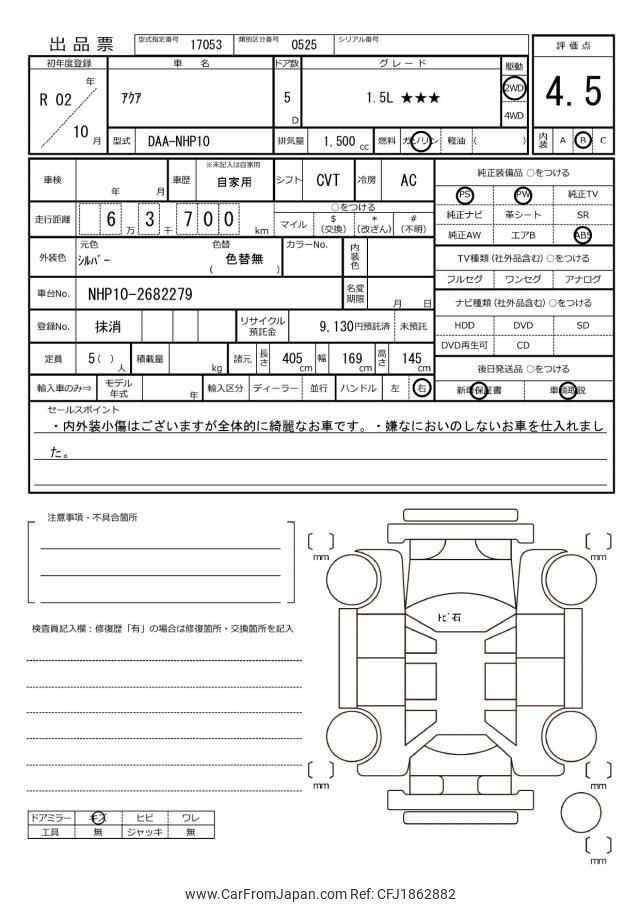 出品票 型式指定番号 17053 類別区分番号 0525 シリアル番号
評価点
4.5
内装 A B C
初年度登録 車名 ドア数 グレード 駆動
R 02 年 10 月
アクア 5 D 1.5L ★★★ 2WD 4WD
型式 DAA-NHP10 排気量 1,500 cc 燃料 ガソリン 軽油 ( )
車検 年 月 車歴 ※未記入は自家用 自家用 シフト CVT 冷房 AC
走行距離 6 万 3 千 7 0 0 km
○をつける
マイル $ (交換) * (改ざん) # (不明)
外装色 元色 シルバー 色替 ( 色替無 ) カラーNo. 内装色
車台No. NHP10-2682279 名変期限 月 日
登録No. 抹消 リサイクル預託金 9,130円預託済 未預託
定員 5 ( ) 人 積載量 kg 諸元 長さ 405 cm 幅 169 cm 高さ 145 cm
輸入車のみ⇒ モデル年式 年 輸入区分 ディーラー 並行 ハンドル 左 右
純正装備品 ○をつける
PS PW 純正TV
純正ナビ 革シート SR
純正AW エアB ABS
TV種類 (社外品含む) ○をつける
フルセグ ワンセグ アナログ
ナビ種類 (社外品含む) ○をつける
HDD DVD SD
DVD再生可 CD
後日発送品 ○をつける
新車保証書 車輌取説
セールスポイント
・内外装小傷はございますが全体的に綺麗なお車です。・嫌なにおいのしないお車を仕入れまし
た。
注意事項・不具合箇所
検査員記入欄：修復歴「有」の場合は修復箇所・交換箇所を記入
[ ] mm [ ] mm
トビ石
[ ] mm [ ] mm
[ ] mm
ドアミラー キズ ヒビ ワレ
工具 無 ジャッキ 無
www.CarFromJapan.com Ref: CFJ1862882